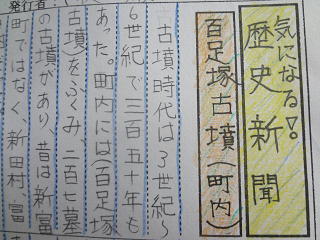 発行者:
気になる!
歴史新聞
百足塚古墳(町内)
古墳時代は3世紀〜
6世紀で三百五十年も
あった。町内には(百足塚
古墳)をふくみ、二百七墓
の古墳があり、昔は新富
町ではなく、新田村、富